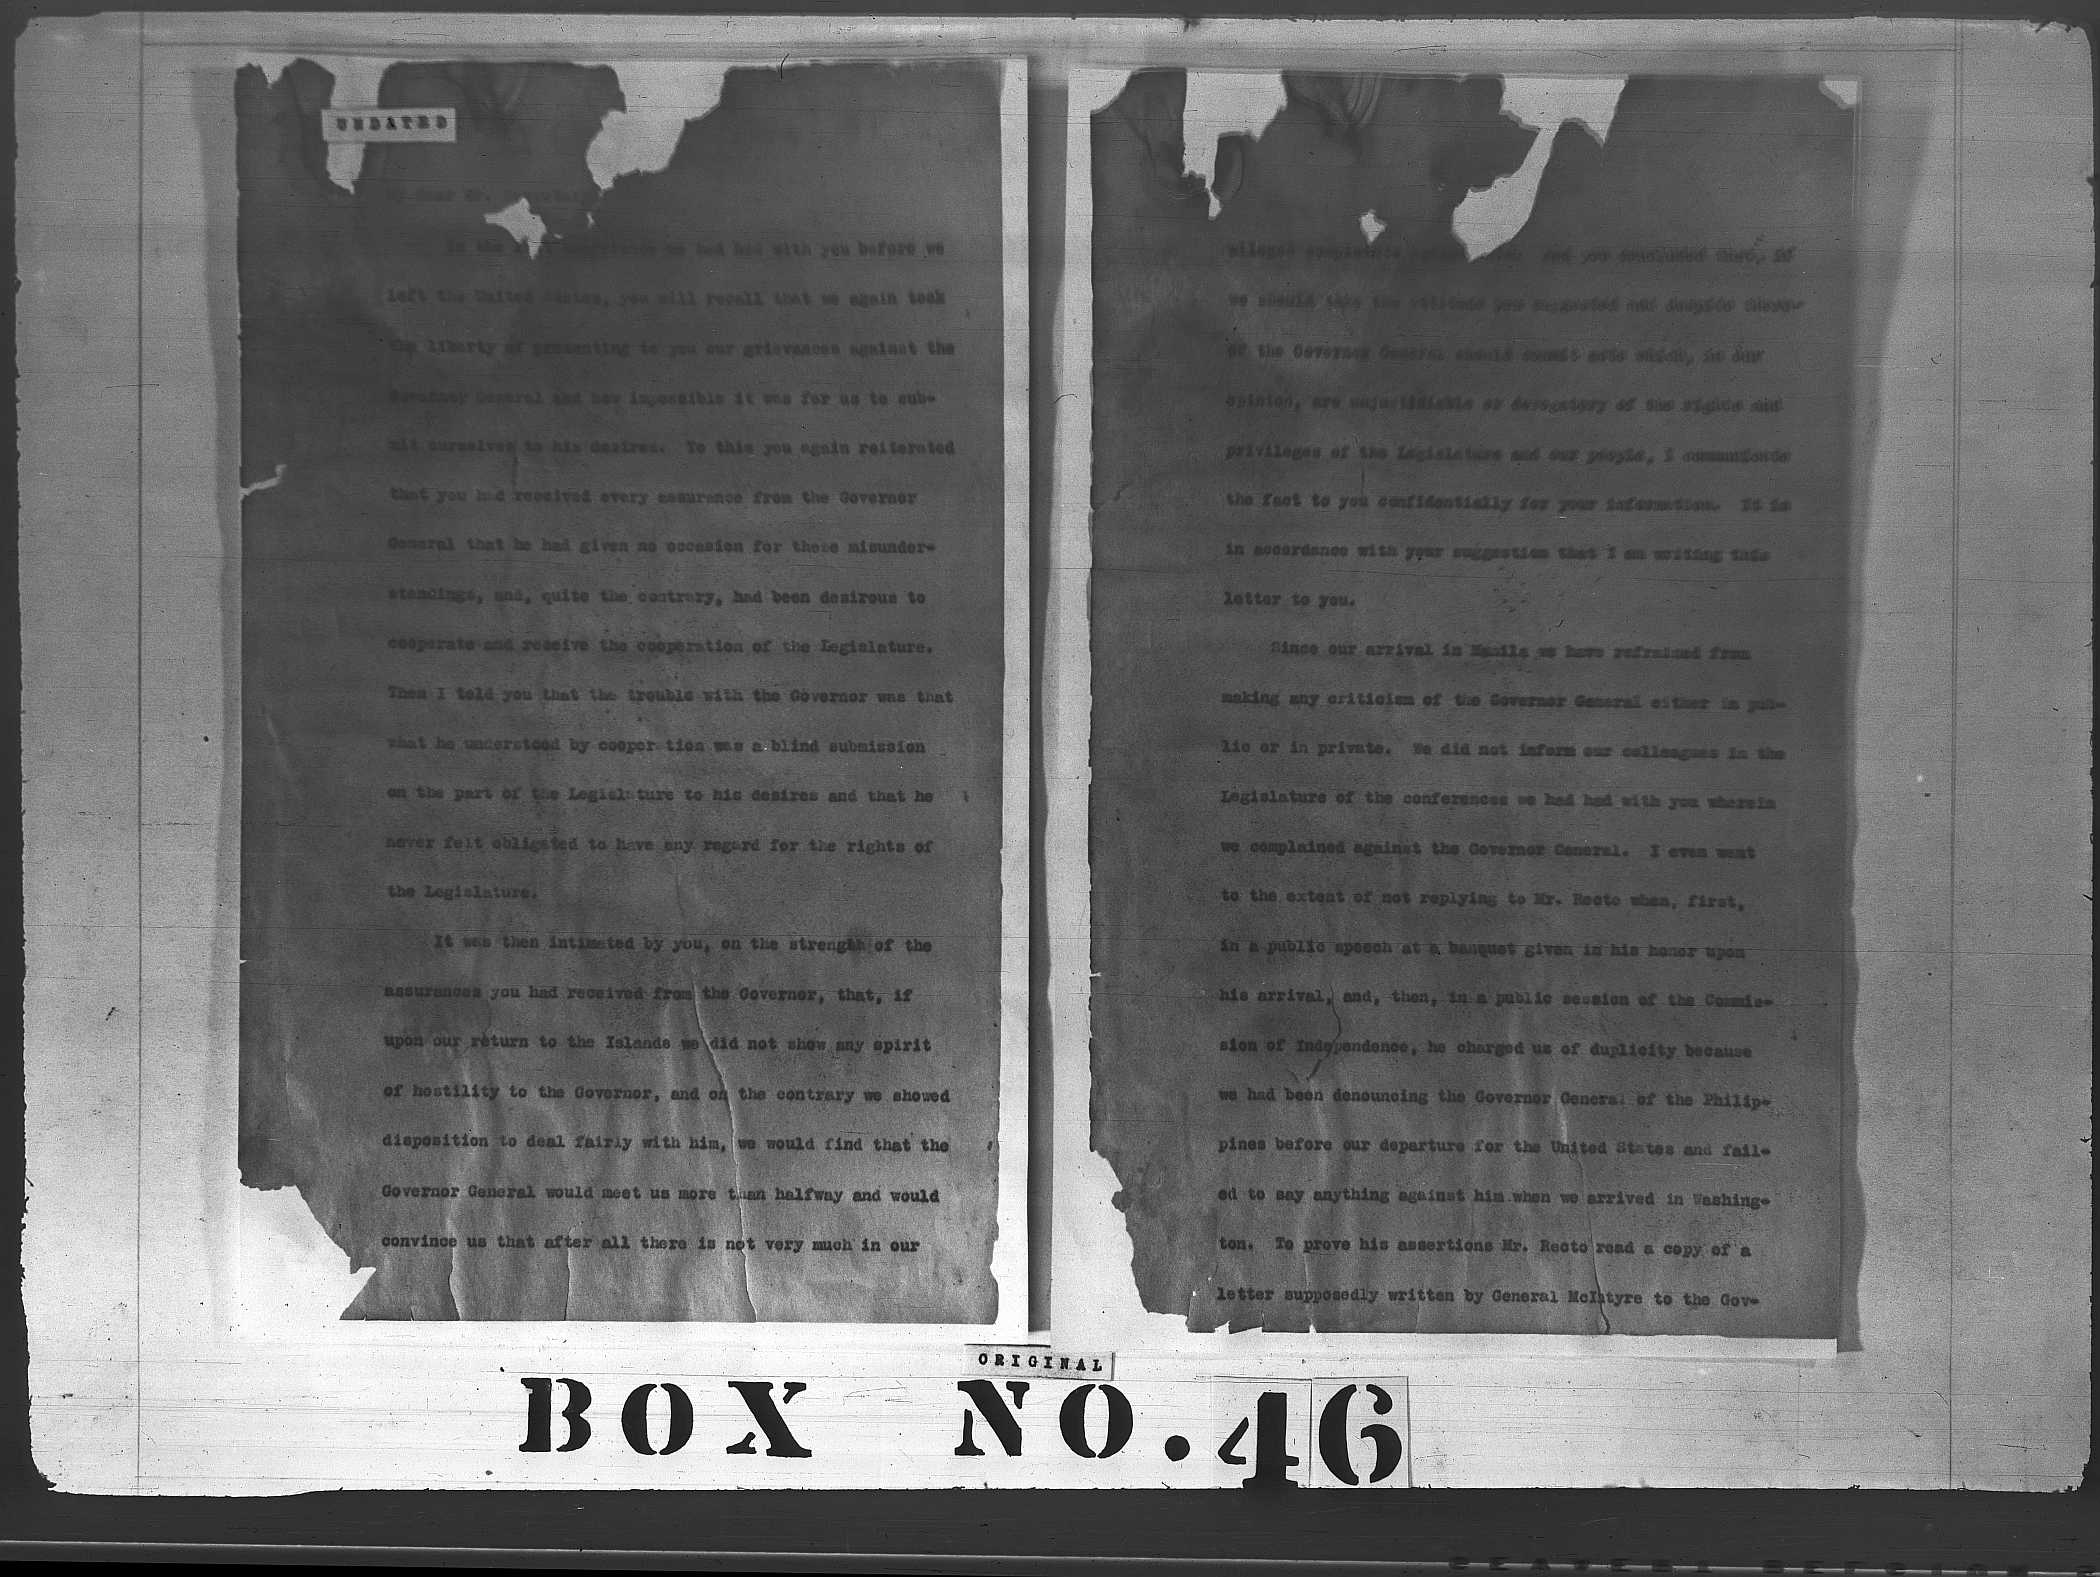 UNDATED
My dear Mr.
In the had had with you before we
left the United States, you will recall that we again took
the liberty of presenting to you our grievances against the
Governor General and how impossible it was for us to sub-
mit ourselves to his desires. To this you again reiterated
that you had received every assurance from the Governor
General that he had given no occasion for these misunder-
standings, and, quite the contrary, had been desirous to
cooperate and receive the cooperation of the Legislature.
Then I told you that the trouble with the Governor was that
what he understood by cooperation was a blind submission
on the part of the Legislature to his desires and that he
never felt obligated to have any regard for the rights of
the Legislature.
It was then intimated by you, on the strength of the
assurances you had received from the Governor, that, if
upon our return to the Islands we did not show any spirit
of hostility to the Governor, and on the contrary we showed
disposition to deal fairly with him, we would find that the
Governor General would meet us more than halfway and would
convince us that after all there is not very much in our
alleged complaints and you concluded that, if
we should take the attitude you suggested and despite there-
of the Governor General should commit acts which, in our
opinion, are unjustifiable or derogatory of the rights and
privileges of the Legislature and our people, I communicate
the fact to you confidentially for your information. It is
in accordance with your suggestion that I am writing this
letter to you.
Since our arrival in Manila we have refrained from
making any criticism of the Governor General either in pub-
lic or in private. We did not inform our colleagues in the
Legislature of the conferences we had had with you wherein
we complained against the Governor General. I even went
to the extent of not replying to Mr. Recto when, first,
in a public speech at a banquet given in his honor upon
his arrival, and, then, in a public session of the Commis-
sion of Independence, he charged us of duplicity because
we had been denouncing the Governor General of the Philip-
pines before our departure for the United States and fail-
ed to say anything against him when we arrived in Washing-
ton. To prove his assertions Mr. Recto read a copy of a
letter supposedly written by General McIntyre to the Gov-
ORIGINAL
BOX NO. 46